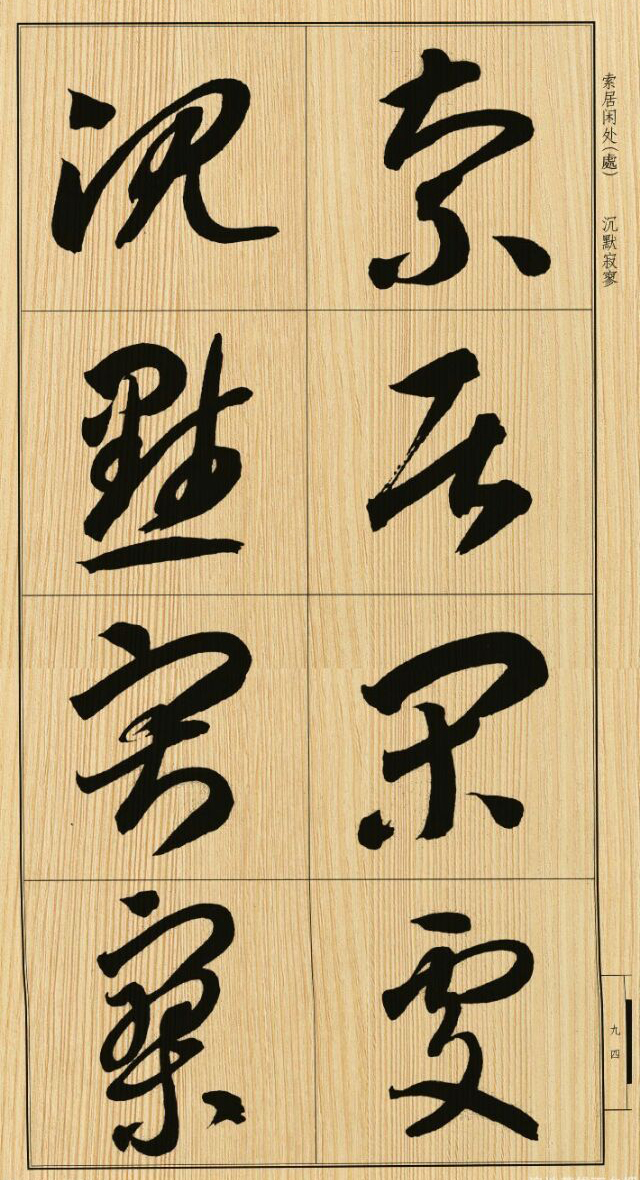 索居闲处(處) 沉默寂寥
索居闲處
沉默寂寥
九四